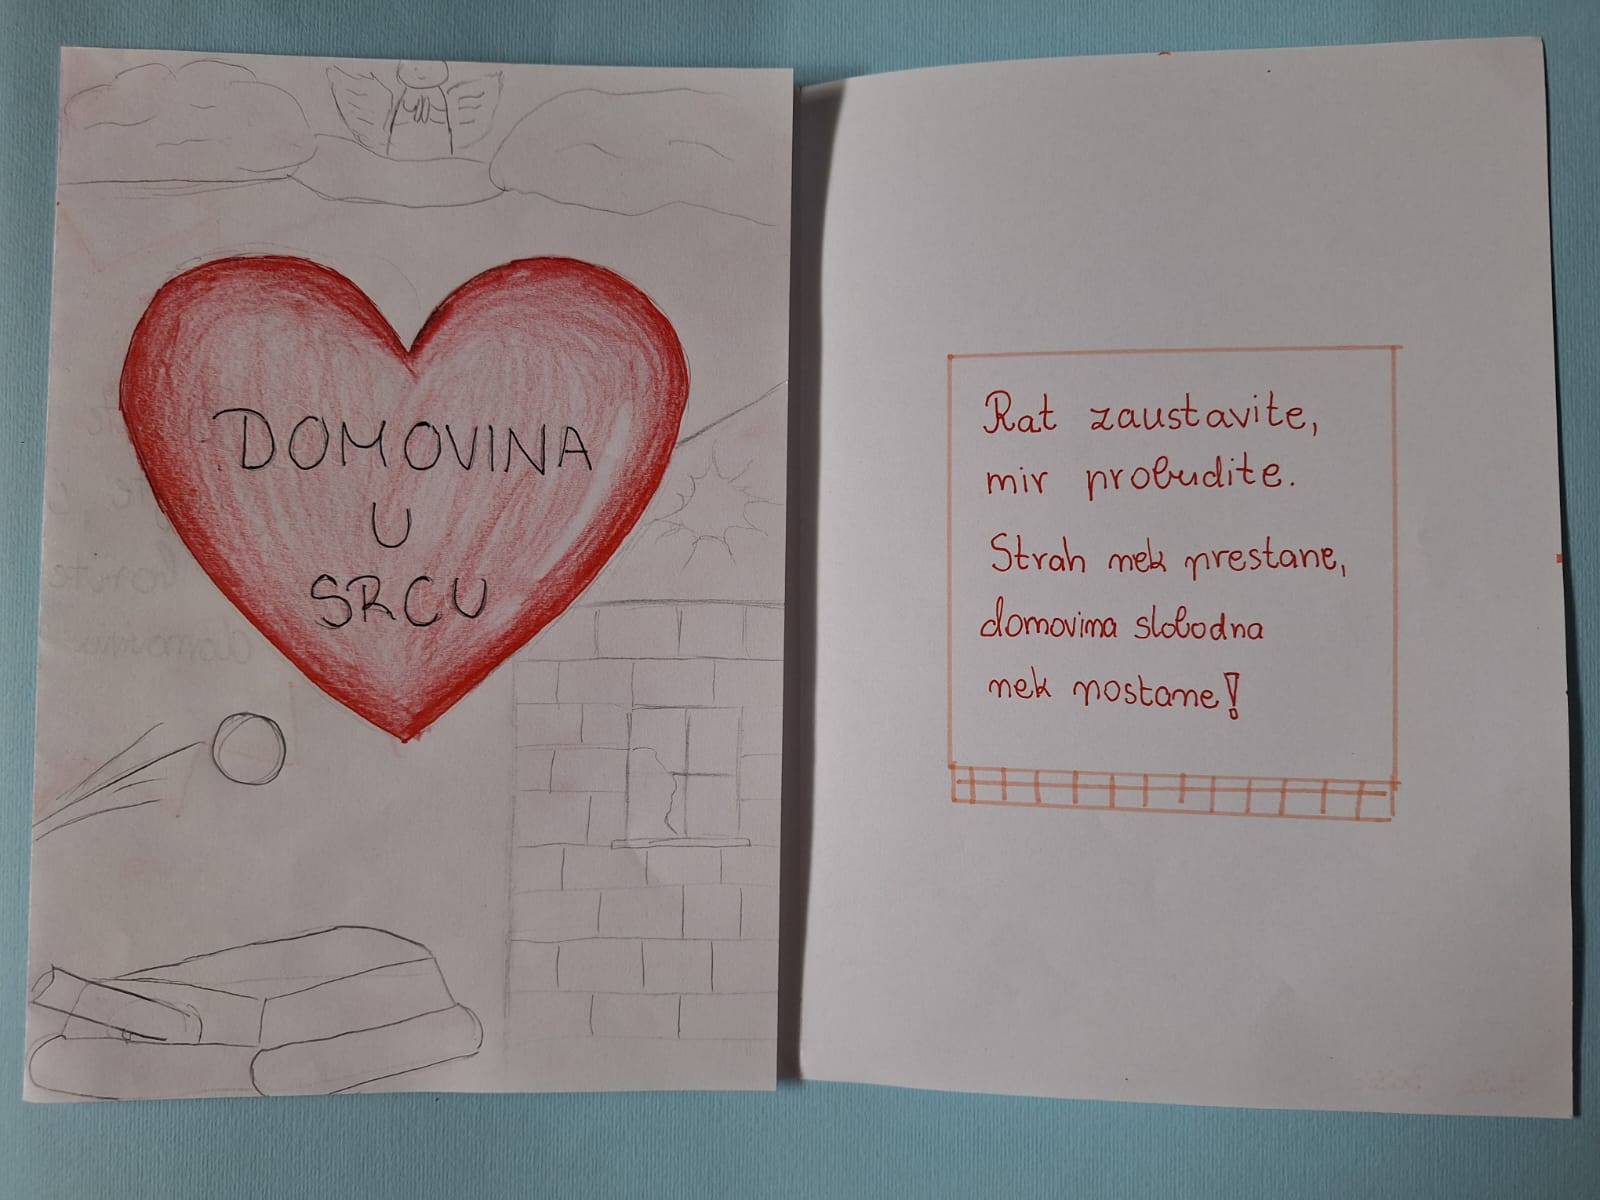 DOMOVINA
U
SRCU
Rat zaustavite,
mir probudite.
Strah nek prestane,
domovina slobodna
nek postane!